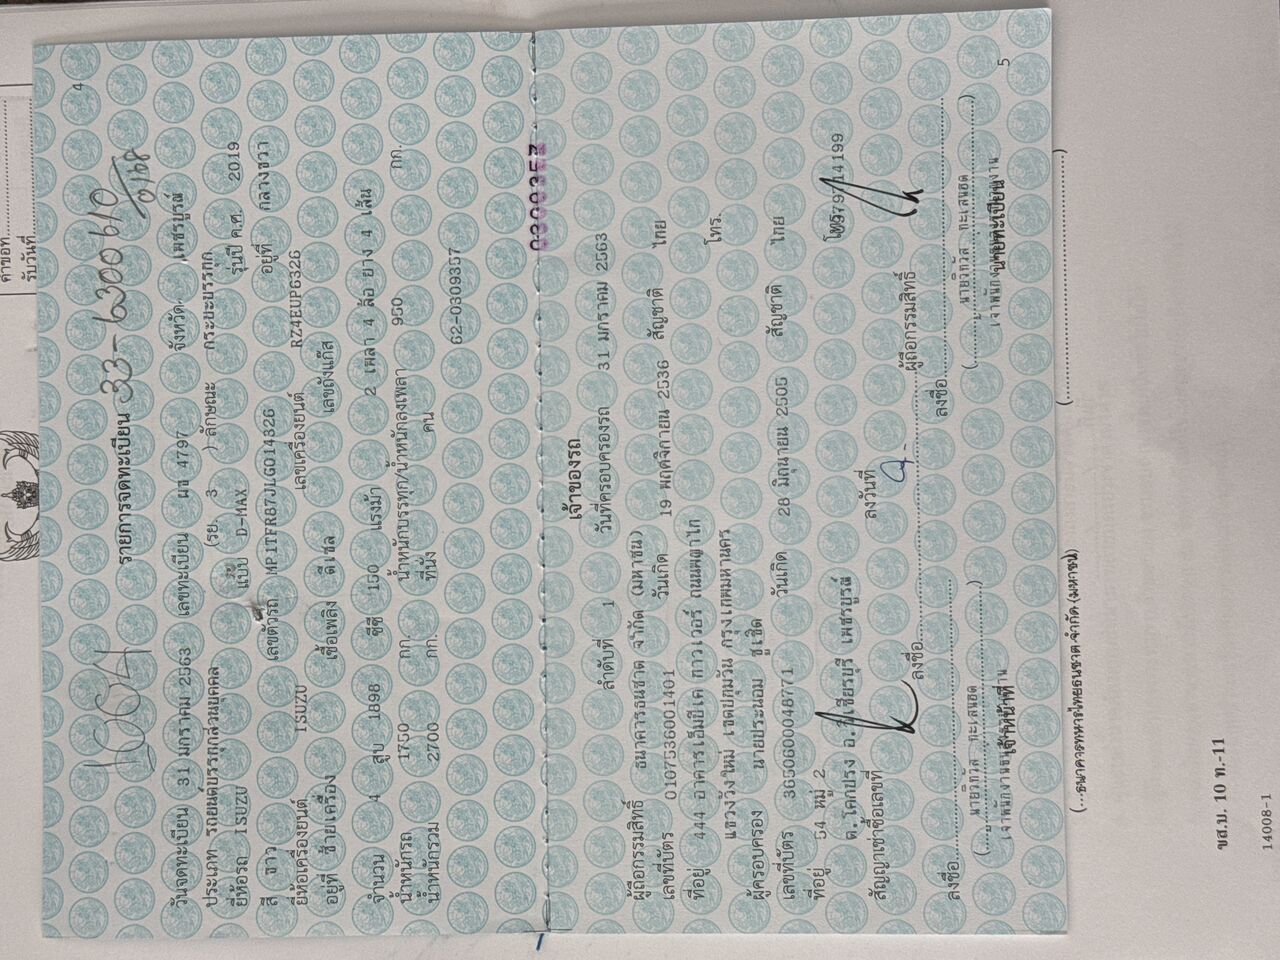 คำขอที่
รับวันที่
4
1664
33-6300610
9/68
รายการจดทะเบียน
วันจดทะเบียน 31 มกราคม 2563 เลขทะเบียน ผธ 4797 จังหวัด เพชรบูรณ์
ประเภท รถยนต์บรรทุกส่วนบุคคล (รย. 3 ) ลักษณะ กระบะบรรทุก
ยี่ห้อรถ ISUZU แบบ D-MAX รุ่นปี ค.ศ. 2019
สี ขาว เลขตัวรถ MP1TFR87JLG014326 อยู่ที่ กลางขวา
ยี่ห้อเครื่องยนต์ ISUZU เลขเครื่องยนต์ RZ4EUP6326
อยู่ที่ ซ้ายเครื่อง เชื้อเพลิง ดีเซล เลขถังแก๊ส
จำนวน 4 สูบ 1898 ซีซี 150 แรงม้า 2 เพลา 4 ล้อ ยาง 4 เส้น
น้ำหนักรถ 1750 กก. น้ำหนักบรรทุก/น้ำหนักลงเพลา 950 กก.
น้ำหนักรวม 2700 กก. ที่นั่ง คน
62-0309357
0300357
เจ้าของรถ
ลำดับที่ 1 วันที่ครอบครองรถ 31 มกราคม 2563
ผู้ถือกรรมสิทธิ์ ธนาคารธนชาต จำกัด (มหาชน)
เลขที่บัตร 0107536001401 วันเกิด 19 พฤศจิกายน 2536 สัญชาติ ไทย
ที่อยู่ 444 อาคารเอ็มบีเค ทาวเวอร์ ถนนพญาไท โทร.
แขวงวังใหม่ เขตปทุมวัน กรุงเทพมหานคร
ผู้ครอบครอง นายประนอม ชูเชิด
เลขที่บัตร 3650600048771 วันเกิด 28 มิถุนายน 2505 สัญชาติ ไทย
ที่อยู่ 54 หมู่ 2
ต.โคกปรง อ.วิเชียรบุรี เพชรบูรณ์ โทร.
สัญญาเช่าซื้อเลขที่ ลงวันที่
ลงชื่อ ผู้ถือกรรมสิทธิ์
ลงชื่อ ลงชื่อ
เจ้าหน้าที่ นายทะเบียน
5
(...ธนาคารทหารไทยธนชาต จำกัด (มหาชน)
ขส.บ. 10 ท.-11
14008-1